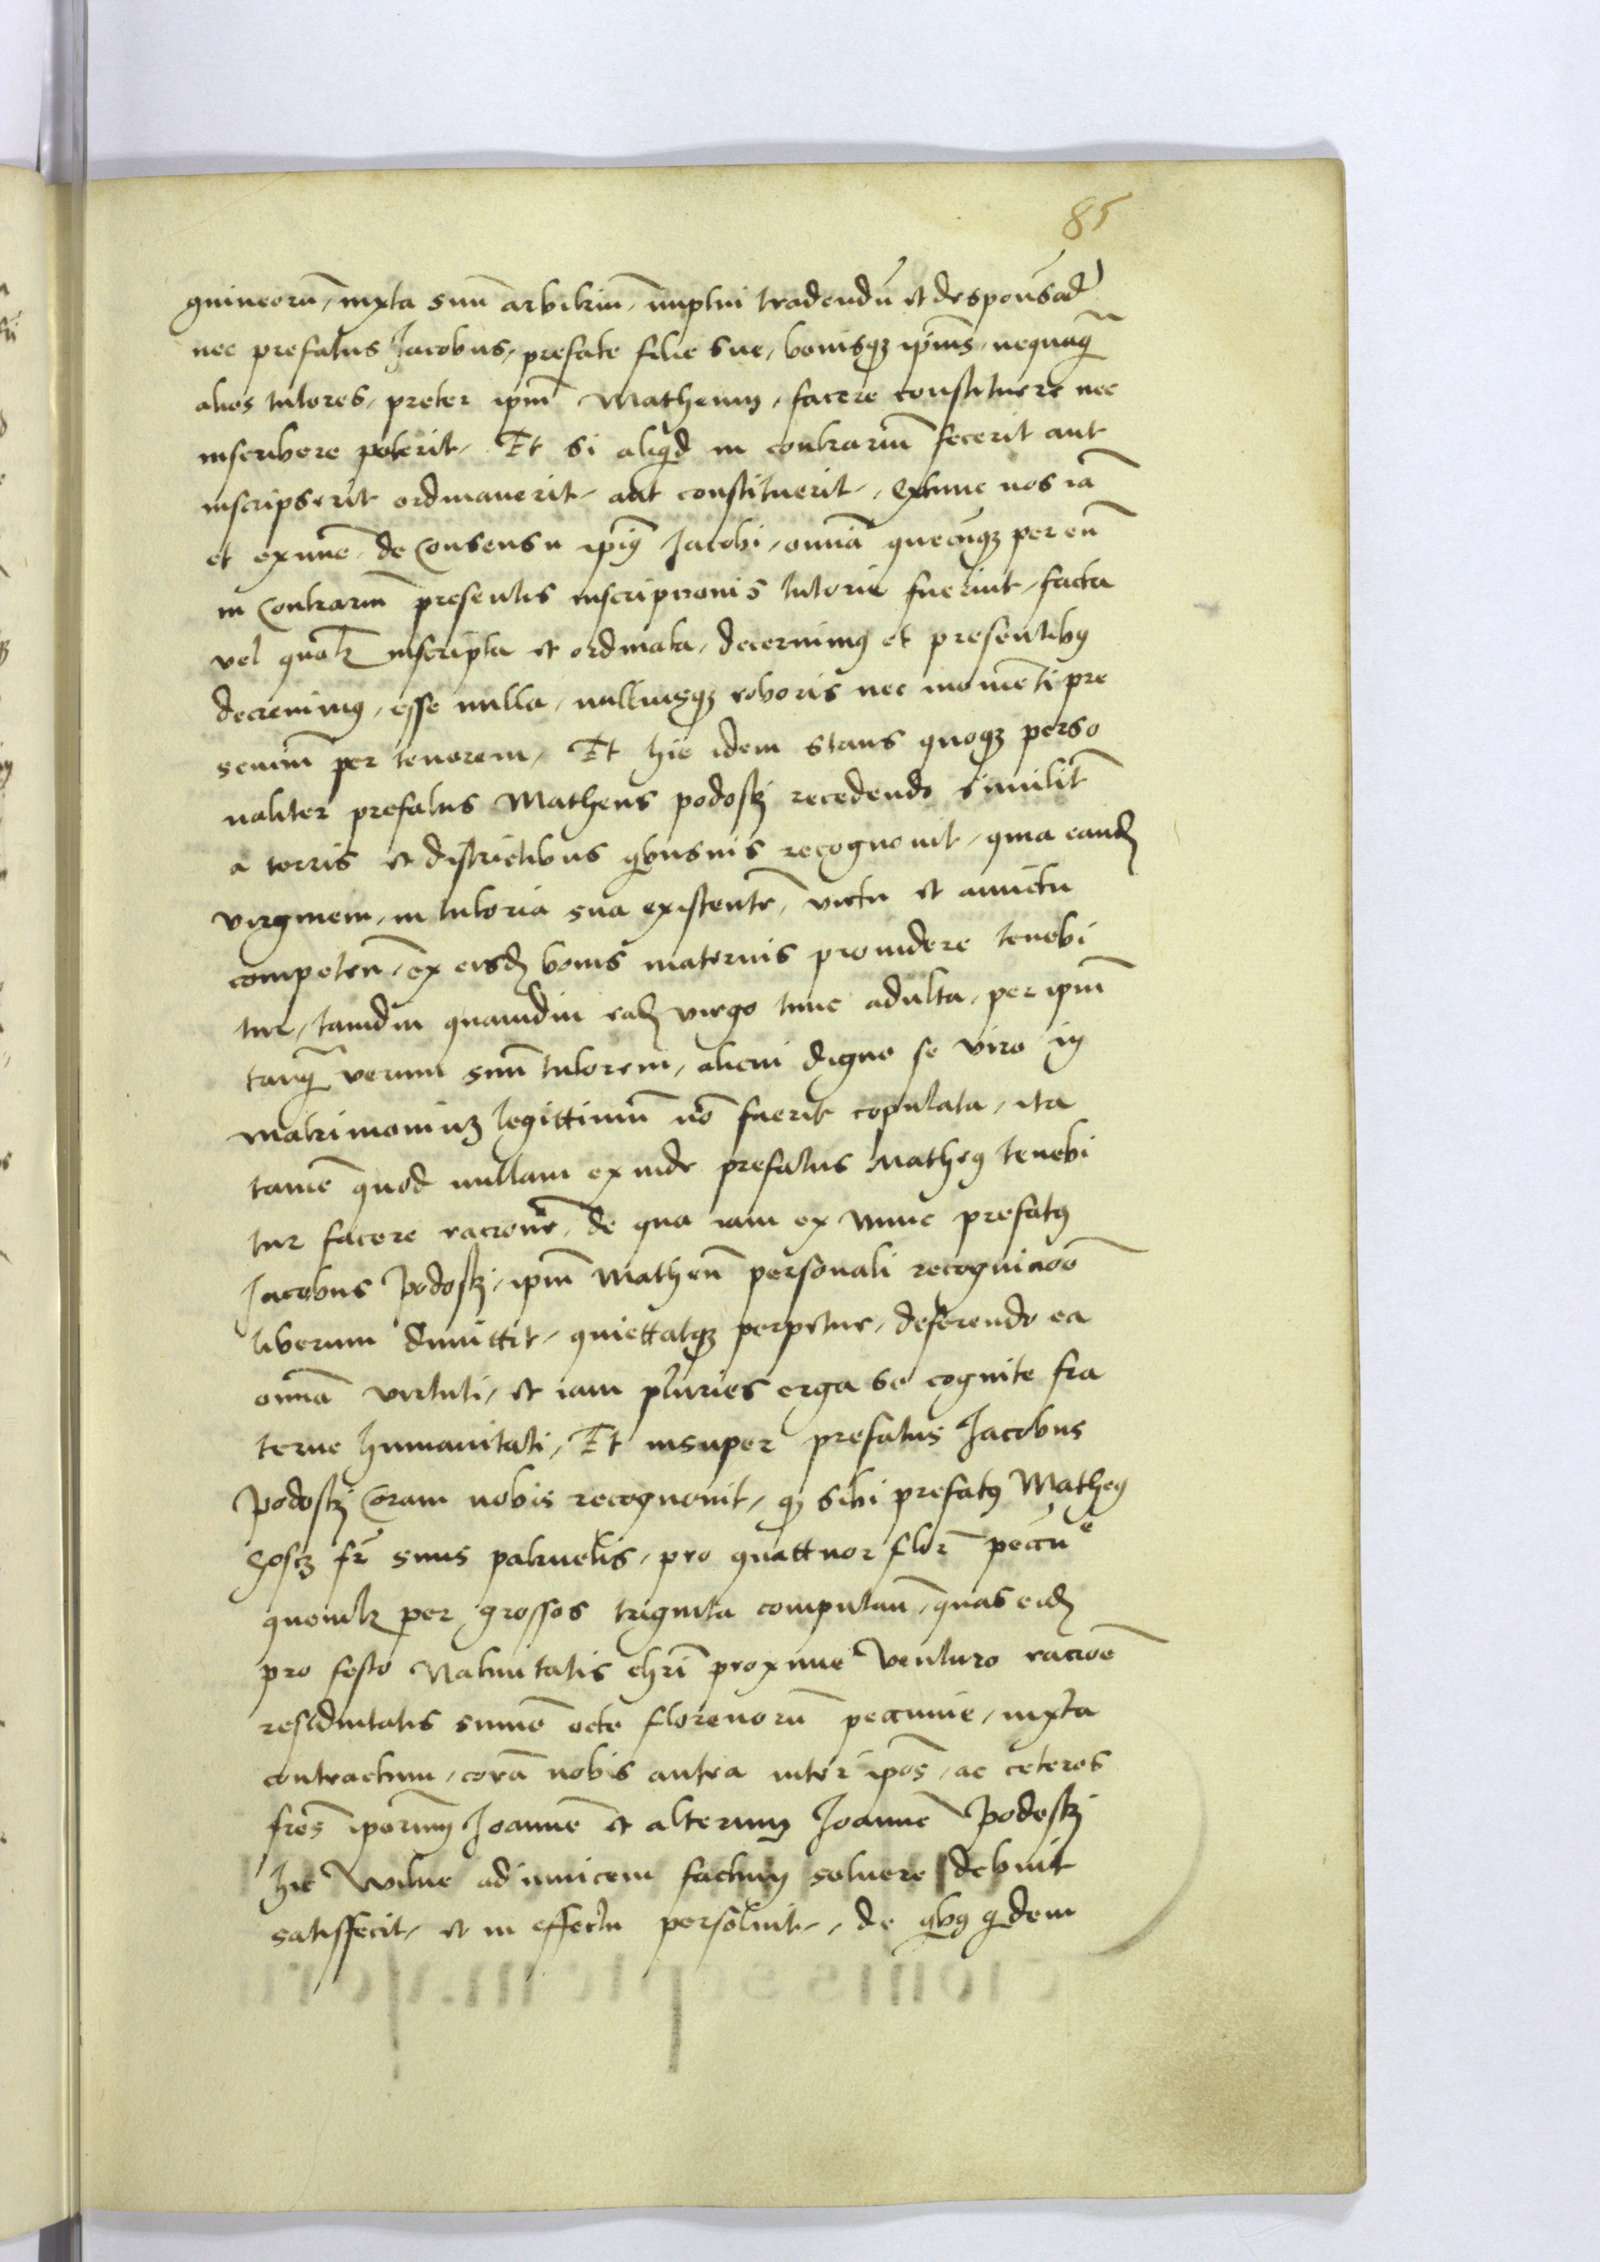 85
guineorū, iuxta suū arbitriū, nuptui tradendū et desponsad
nec prefatus Jacobus, prefate filie sue, bonisq3 ipius, nequaq̄
alios tutores, preter ipm̄ Matheum, facere constituere nec
inscribere poterit, Et si aliqd in contrariū fecerit aut
inscripserit ordinauerit, aut constituerit, extunc nos iā
et exnunc de Consensu ipius Jacobi, omnia quecūq3 per eū
in Contrariū presentis inscripcionis tutorie fuerint, facta
vel qualr inscripta et ordinata, decernimus et presentibus
decreuimus, esse nulla, nulliusq3 roboris nec momēti pre
senciū per tenorem, Et hic idem stans quoq3 perso
naliter prefatus Matheus podoski recedendo similit̄
a terris et districtibus qbusuis recognouit, quia eand
virginem, in tutoria sua existentē, victu et amictu
competen̄, ex eisd bonis maternis prouidere tenebi
tur, tamdiu quamdiu ead virgo tunc adulta, per ipm̄
tanq̄ verum suū tutorem, alicui digno se viro in
matrimonium legittimū nō fuerit copulata, ita
tamē quod nullam exinde prefatus Matheus tenebi
tur facere racionē, de qua iam ex nunc prefatus
Jacobus Podoski, ipm̄ Matheū personali recognicioē
liberum dimittit, quiettatq3 perpetue, deferendo ea
omnia virtuti, et iam pluries erga se cognite fra
terne humanitati, Et insuper prefatus Jacobus
Podoski Coram nobis recognouit, q3 sibi prefatus Matheus
Posci fr̄ suus patruelis, pro quattuor flor̄ pecūe
quemlr per grossos triginta computan̄, quas eid
pro festo Natiuitatis chrī proxime Venturo racioē
residuitatis summe octo florenorū pecunie, iuxta
contractum, corā nobis antea inter ipōs, ac ceteros
fres̄ ipōrum Joannē et alterum Joannē Podoski
hic Wilne adinuicem factum soluere debuit
satisfecit, et in effectu persoluit, de qbus qdem